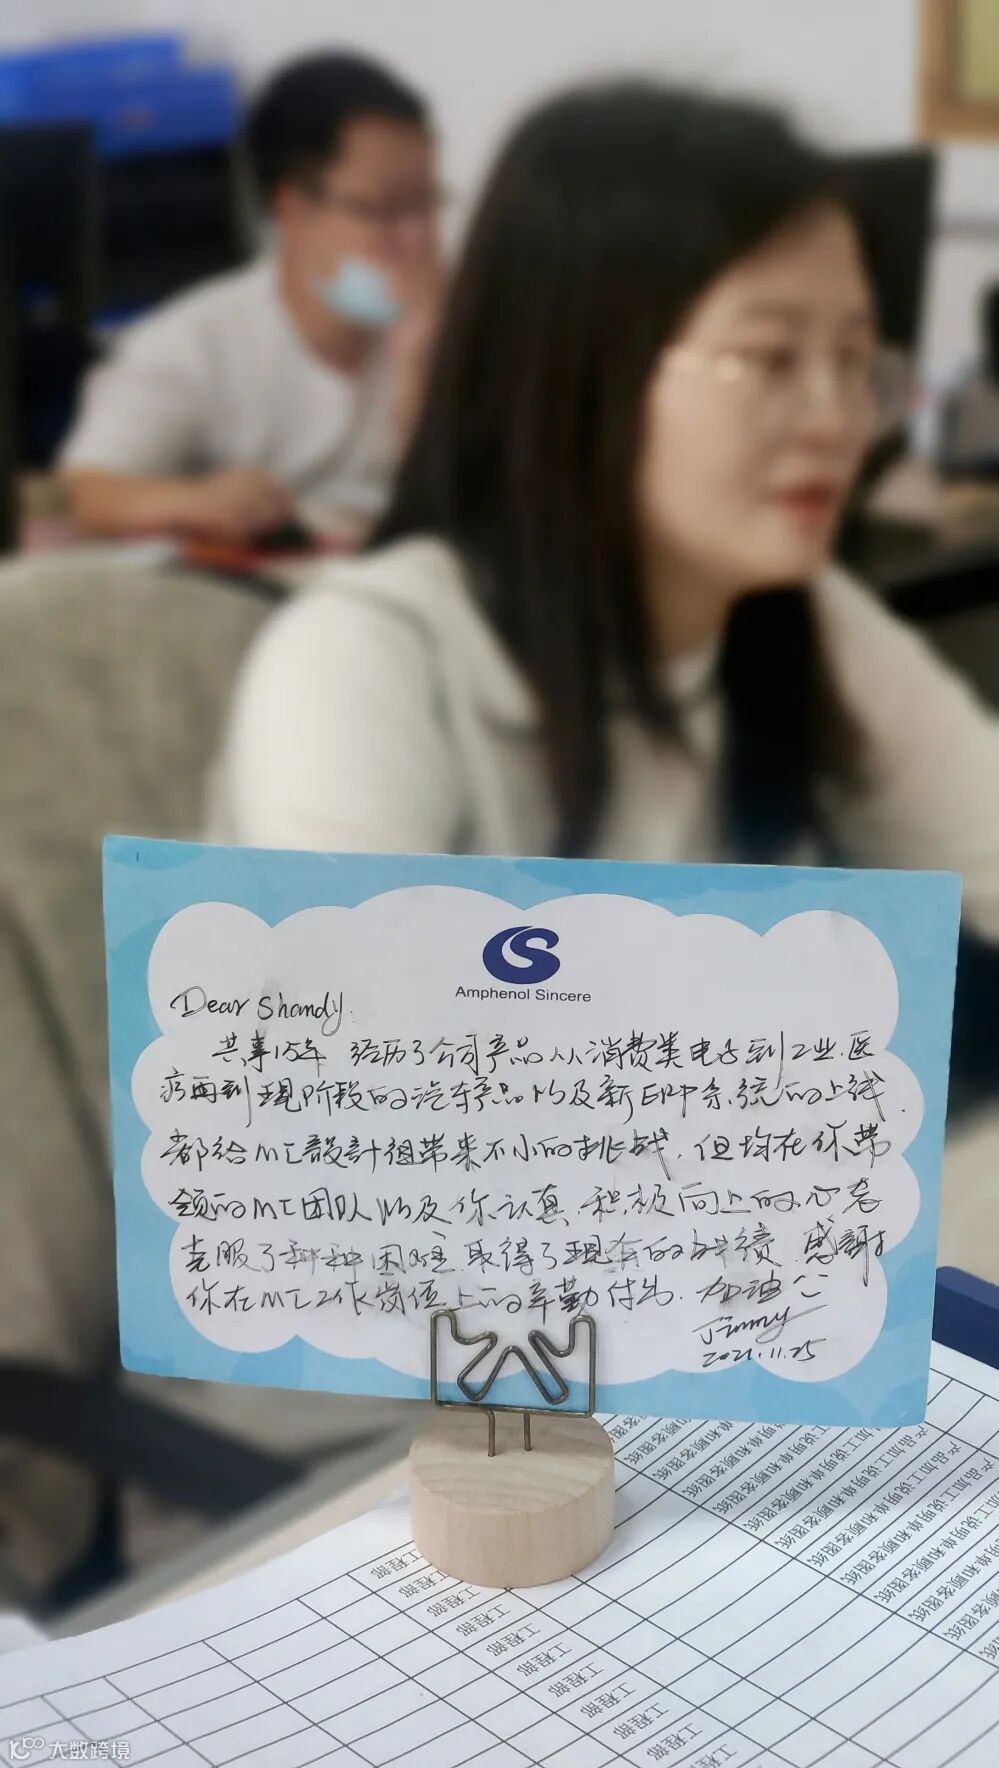 Amphenol Sincere
Dear Shandy.
共事15年 经历了公司产品从消费类电子到工业.医
疗再到现阶段的汽车产品以及新ERP系统的上线.
都给MI設計組带来不小的挑战.但均在你带
领的MI团队以及你认真.积极向上的心态
克服了种种困难.取得了现有的战绩.感謝
你在MI工作岗位上的辛勤付出.加油
Jimmy
2021.11.25
产品加工说明单和顾客图纸
产品加工说明单和顾客图纸
产品加工说明单和顾客图纸
工程部
工程部
工程部
工程部
工程部
工程部
工程部
工程部
大数跨境